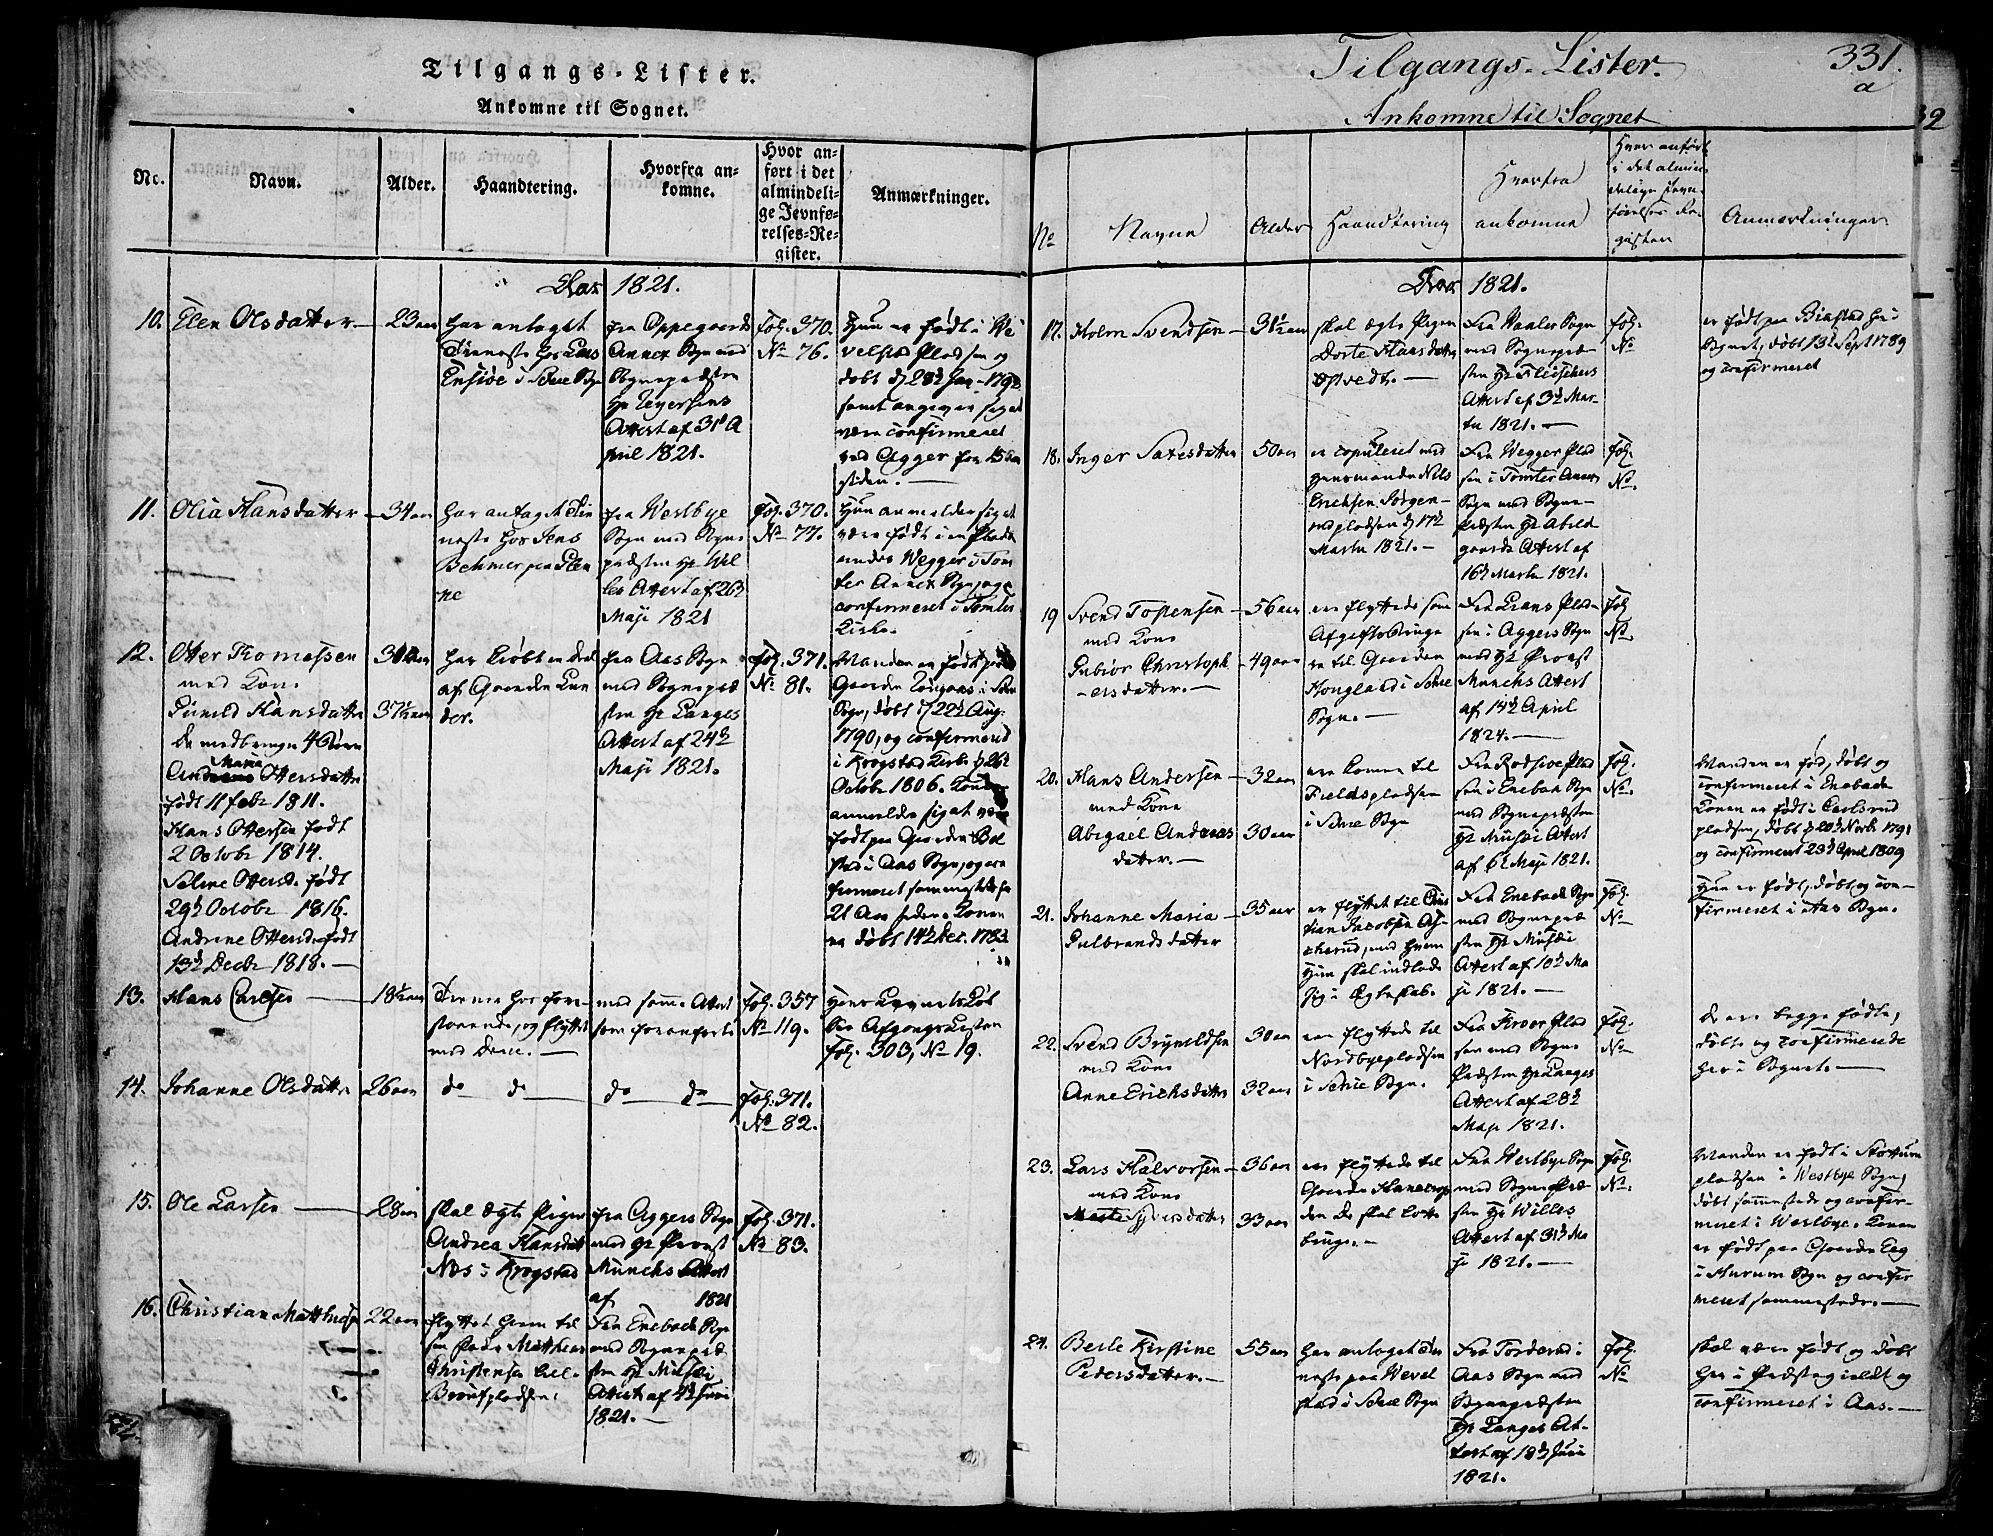 Tilgangs-Lister.
Ankomne til Sognet.
No.
Navn.
Alder.
Haandtering.
Hvorfra an-
komne.
Hvor an-
ført i det
almindeli-
ge Jevnfø-
relses-Re-
gister.
Anmærkninger.
Aar 1821.
10. Elen Olsdatter 23 aar
har antaget
Tieneste hos Lars
i Skie Sogn
fra Oppegaards
Annex Sogn med
Sognepræsten
Attest af 31 A
pril 1821.
Fol. 370.
No 76.
Hun er født i We
velstad Pladsen og
døbt
samt angiver sig at
være confirmeret
ved Agger for 15 Aar
siden.
11. Olia Hansdatter 34 aar
har antaget Tie
neste hos Jens
Behmer paa Ste
ne
fra Westbye
Sogn med Sogne
præsten Hr Wil
les Attest af 26d
Maji 1821
Fol. 370.
No 77.
Hun anmelder sig at
være født i en Plads
under Wegger i Tom
ter Annex Sogn, og
confirmeret i Tomter
Kirke.
12. Otter Thomessen
med Kone
Hansdatter 37½ aar
De medbringe 4 Børn
Maria
Ottersdatter
født 11 Febr 1811.
Hans Ottersen født
2 Octobr 1814.
Seline Ottersd. født
29d Octobr 1816.
Andrine Ottersd. født
13d Decbr 1818.
har kiøbt en Deel
af Gaarden Lun
der.
fra Aas Sogn
med Sognepræ
sten Hr Langes
Attest af 24d
Maji 1821.
Fol. 371.
No 81.
Manden er født paa
Gaarden i Skie
Sogn, døbt d 22d Aug.
1790, og confirmered
i Krogstad Kirke d 26d
Octobr 1806. Konen
anmelder sig at være
født paa Gaarden Bol
stad i Aas Sogn, og con
firmeret sammesteds for
21 Aar siden. Konen
er døbt 14d Dec. 1783
13. Hans 18½ aar
Tiener hos fore
staaende, og flyttet
med Dem.
med samme Attest
som foranførte
Fol. 357
No 119.
Afgangs Listen
Fol. 303, No 19.
14. Johanne Olsdatter 26 aar
do do
do do
Fol. 371.
No 82.
15. Ole Larsen 28 aar
skal ægte Pigen
Andrea Hansdatt
Næs i Krogstad
fra Aggers Sogn
med Hr Provst
Munchs Attest
af 1821
Fol. 371.
No 83.
16. Christian Matthias 22 aar
flyttet hiem til
sin Fader Matthias
Christensen
Fra Enebak Sogn
med Sognepræ
sten Hr Musæi
Attest af 4d Juni
1821.
Tilgangs-Lister.
331.
a
Ankomne til Sognet
32
No
Navne
Alder
Haandtering
Hvorfra
ankomne
Hvor anført
i det almin
delige Jevn
førelses Re-
gister
Anmærkninger
Aar 1821.
17. Holm Svendsen 31½ aar
skal ægte Pigen
Dorte Hansdatter
Fra Waaler Sogn
med Sognepræ
sten Hr Fleischers
Attest af 3d Mar-
tii 1821.
Fol.
No
er født paa her i
Sognet, døbt 13d Sept 1789
og confirmeret
18. Inger 50 aar
er copuleret med
Huusmanden Nils
Erichsen Sørgen-
pladsen d 17d
Martii 1821.
Fra Wegger Plad
sen i Tomter Annex
Sogn med Sogne-
Præsten Hr Abild
gaards Attest af
16d Martii 1821.
Fol.
No.
19 Svend Tostensen 56 aar
med Kone
Gubiør Christoph- 49 aar
ersdatter.
ere flyttede som
Afgiftsbruge
re til Gaarden
Houglund i Skie
Sogn.
Fra Plad-
sen i Aggers Sogn
med Hr Provst
Munchs Attest
af 14d April
1821.
Fol
No.
20. Hans Andersen 32 aar
med Kone
Abigael Andreas 30 aar
datter.
ere komne til
Fieldspladsen
i Skie Sogn
Fra Plad
sen i Enebak Sogn
med Sognepræsten
Hr Musæi Attest
af 6d Maji 1821.
Fol.
No.
Manden er fød, døbt og
confirmeret i Enebak
Konen er født i Carlsrud
pladsen, døbt d 20d Novbr 1791
og confirmeret 23d April 1809
21. Johanne Maria 35 aar
Gulbrandsdatter
er flyttet til Chris
tian Jacobsen
med hvem
Hun skal indlade
sig i Ægteskab.
Fra Enebak Sogn
med Sognepræ
sten Hr Musæi
Attest af 10d Ma
ji 1821.
Fol.
No
Hun er født, døbt og con-
firmeret i Aas Sogn.
22. Svend Bryneldsen 30 aar
med Kone
Anne Erichsdatter 32 aar
ere flyttede til
Nordbyepladsen
i Skie Sogn.
Fra Kroer Plad
sen med Sogne
Præsten Hr Langes
Attest af 28d
Maji 1821.
Fol.
No
De ere begge fødte,
døbte og confirmerede
her i Sognet.
23. Lars Halvorsen 36 aar
med Kone
Marte Syversdatter 33 aar
ere flyttede til
Gaarden
den de skal
bruge.
Fra Westbye Sogn
med Sognepræ
sten Hr Willes
Attest af 31d Ma
ji 1821.
Fol.
No.
Manden er født i
pladsen i Westbye Sogn,
døbt sammesteds og confir-
meret i Westbye. Konen
er født paa Gaarden Eeg
i Hurum Sogn og confir
meret sammesteds.
24. Berte Kirstine 55 aar
Pedersdatter.
har antaget Tie
neste paa Wevel
stad i Skie Sogn
Fra Torderud i
Aas Sogn med
Sognepræsten
Hr Langes At-
test af 18d Juni
1821.
Fol.
No
skal være født og døbt
her i Præstegieldet og
confirmeret i Aas.